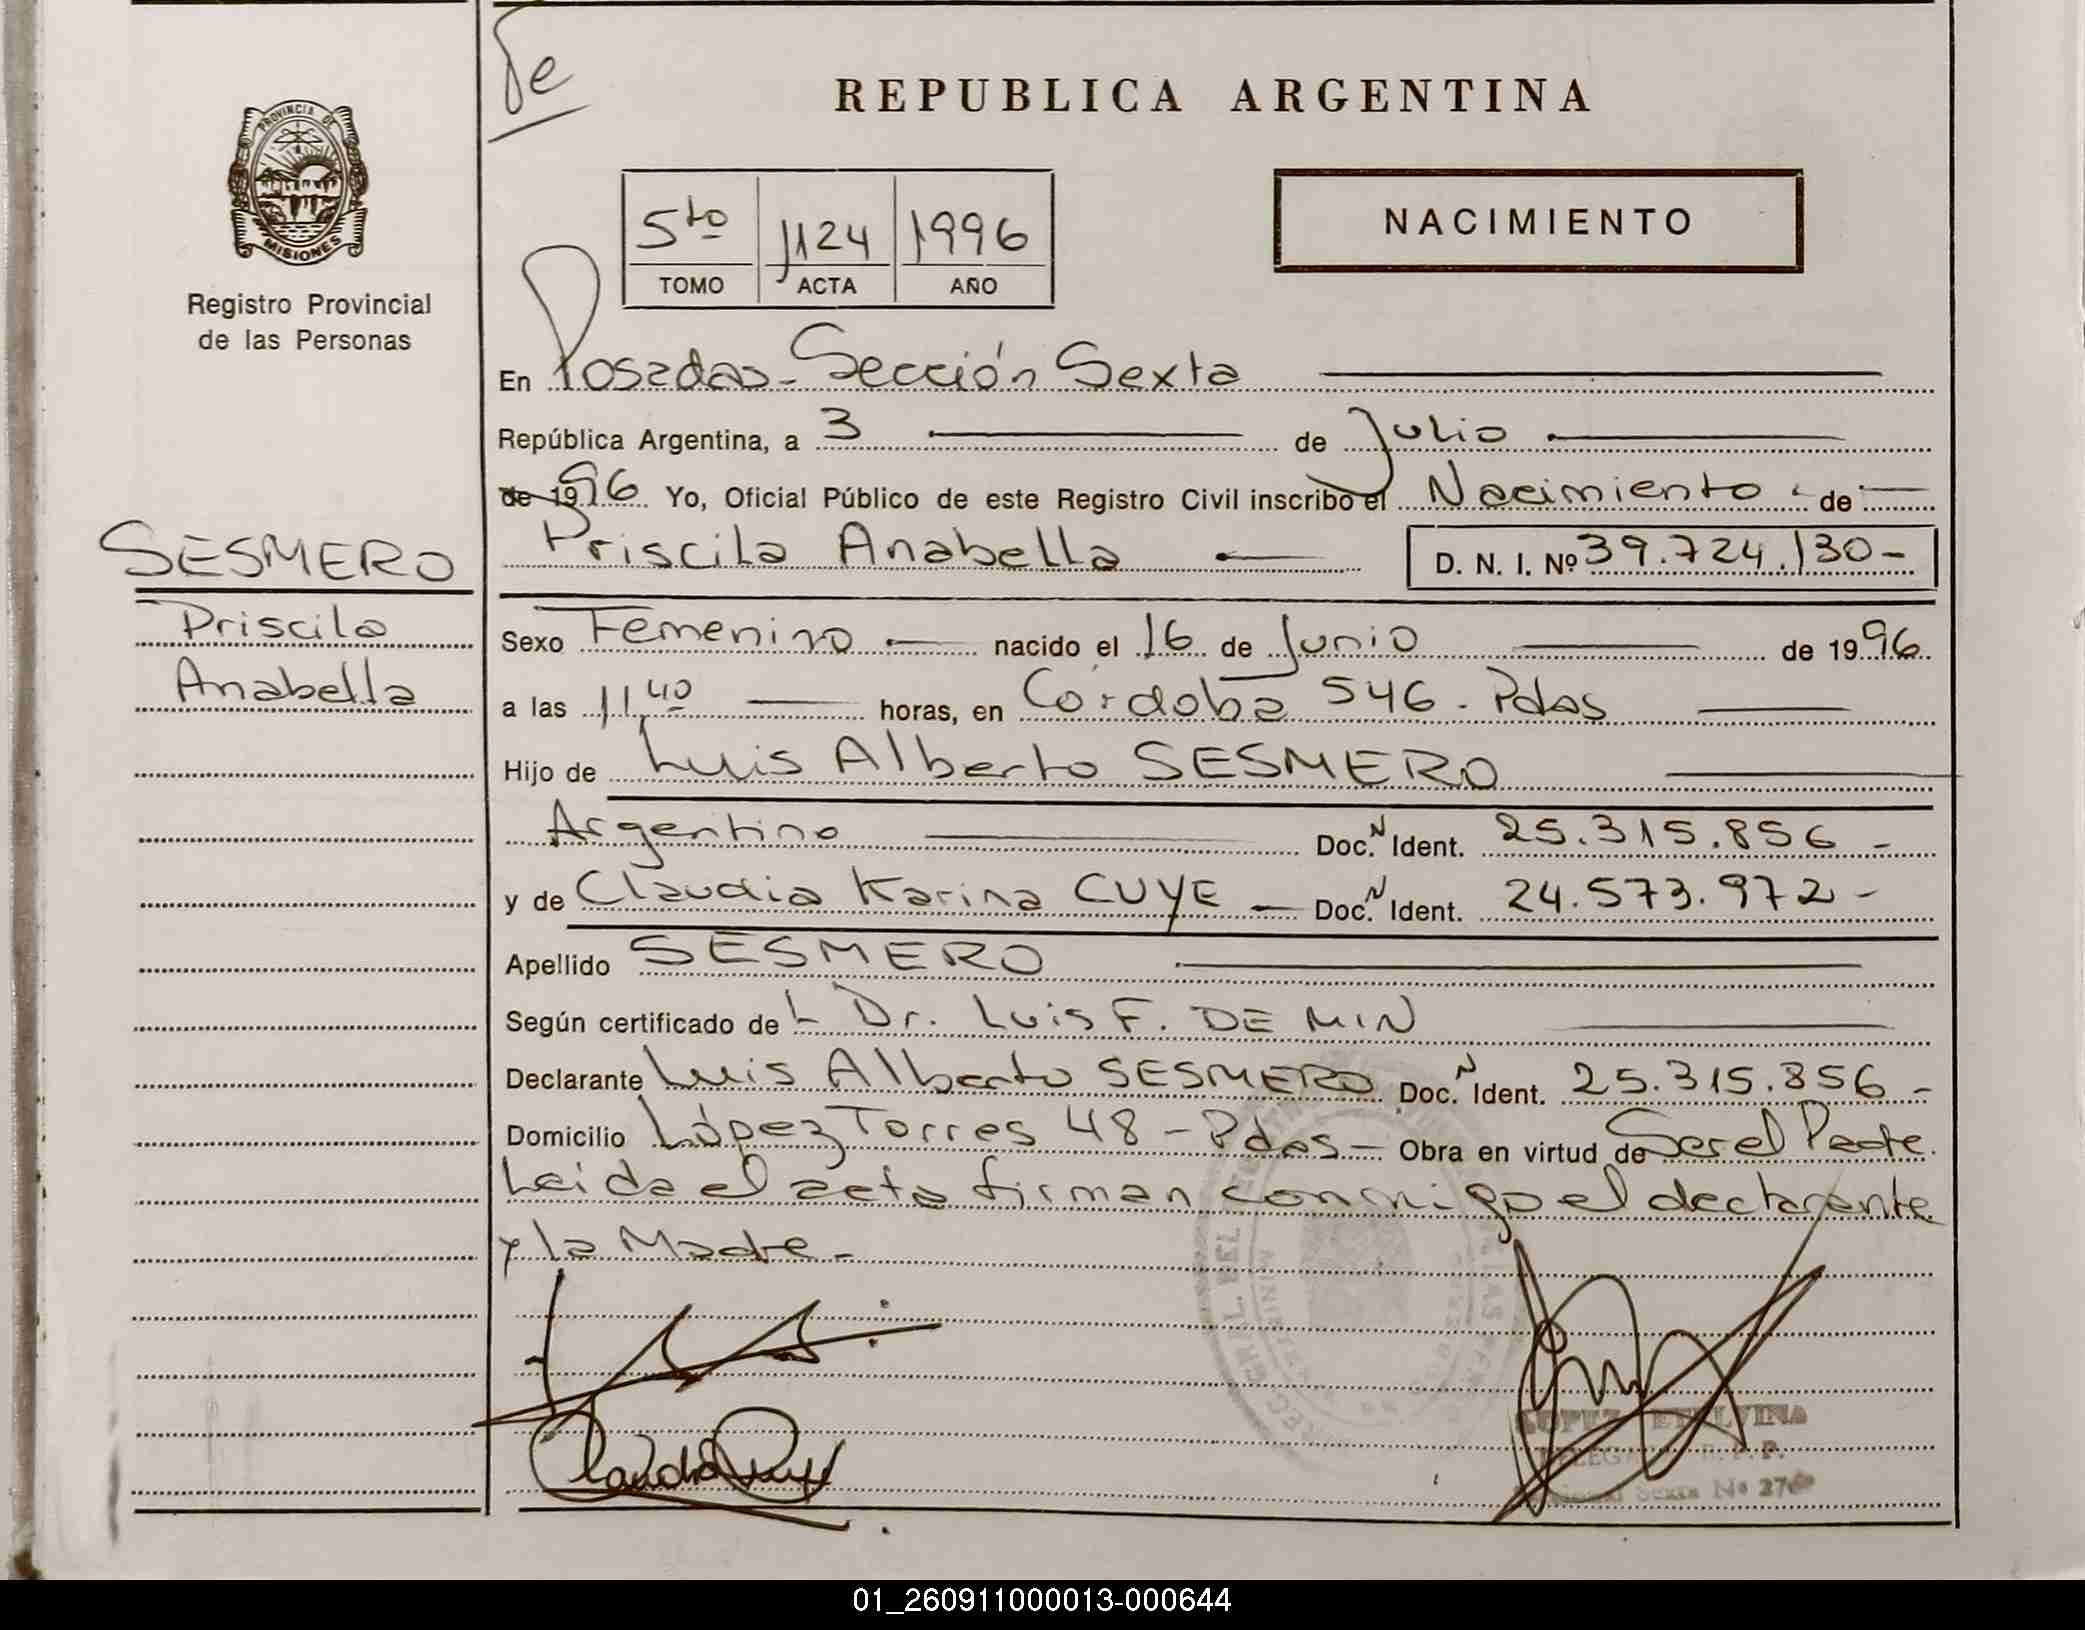 Te
REPUBLICA ARGENTINA
PROVINCIA DE
MISIONES
Registro Provincial
de las Personas
5to 1124 1996
TOMO ACTA AÑO
NACIMIENTO
En Posadas - Sección Sexta
República Argentina, a 3 de Julio
de 1996 Yo, Oficial Público de este Registro Civil inscribo el Nacimiento de
SESMERO
Priscila Anabella D. N. I. Nº 39.724.130-
Priscila
Anabella
Sexo Femenino nacido el 16 de Junio de 1996
a las 11,40 horas, en Córdoba 546 - Pdas
Hijo de Luis Alberto SESMERO
Argentino Doc. N Ident. 25.315.856 -
y de Claudia Karina CUYE - Doc. N Ident. 24.573.972 -
Apellido SESMERO
Según certificado de L Dr. Luis F. DE MIN
Declarante Luis Alberto SESMERO Doc. N Ident. 25.315.856 -
Domicilio López Torres 48 - Pdas - Obra en virtud de Ser el Padre.
Leida el acta firman conmigo el declarante
y la Madre -
Claudia
LOPEZ
R. P. P.
Sexta Nº
01_260911000013-000644